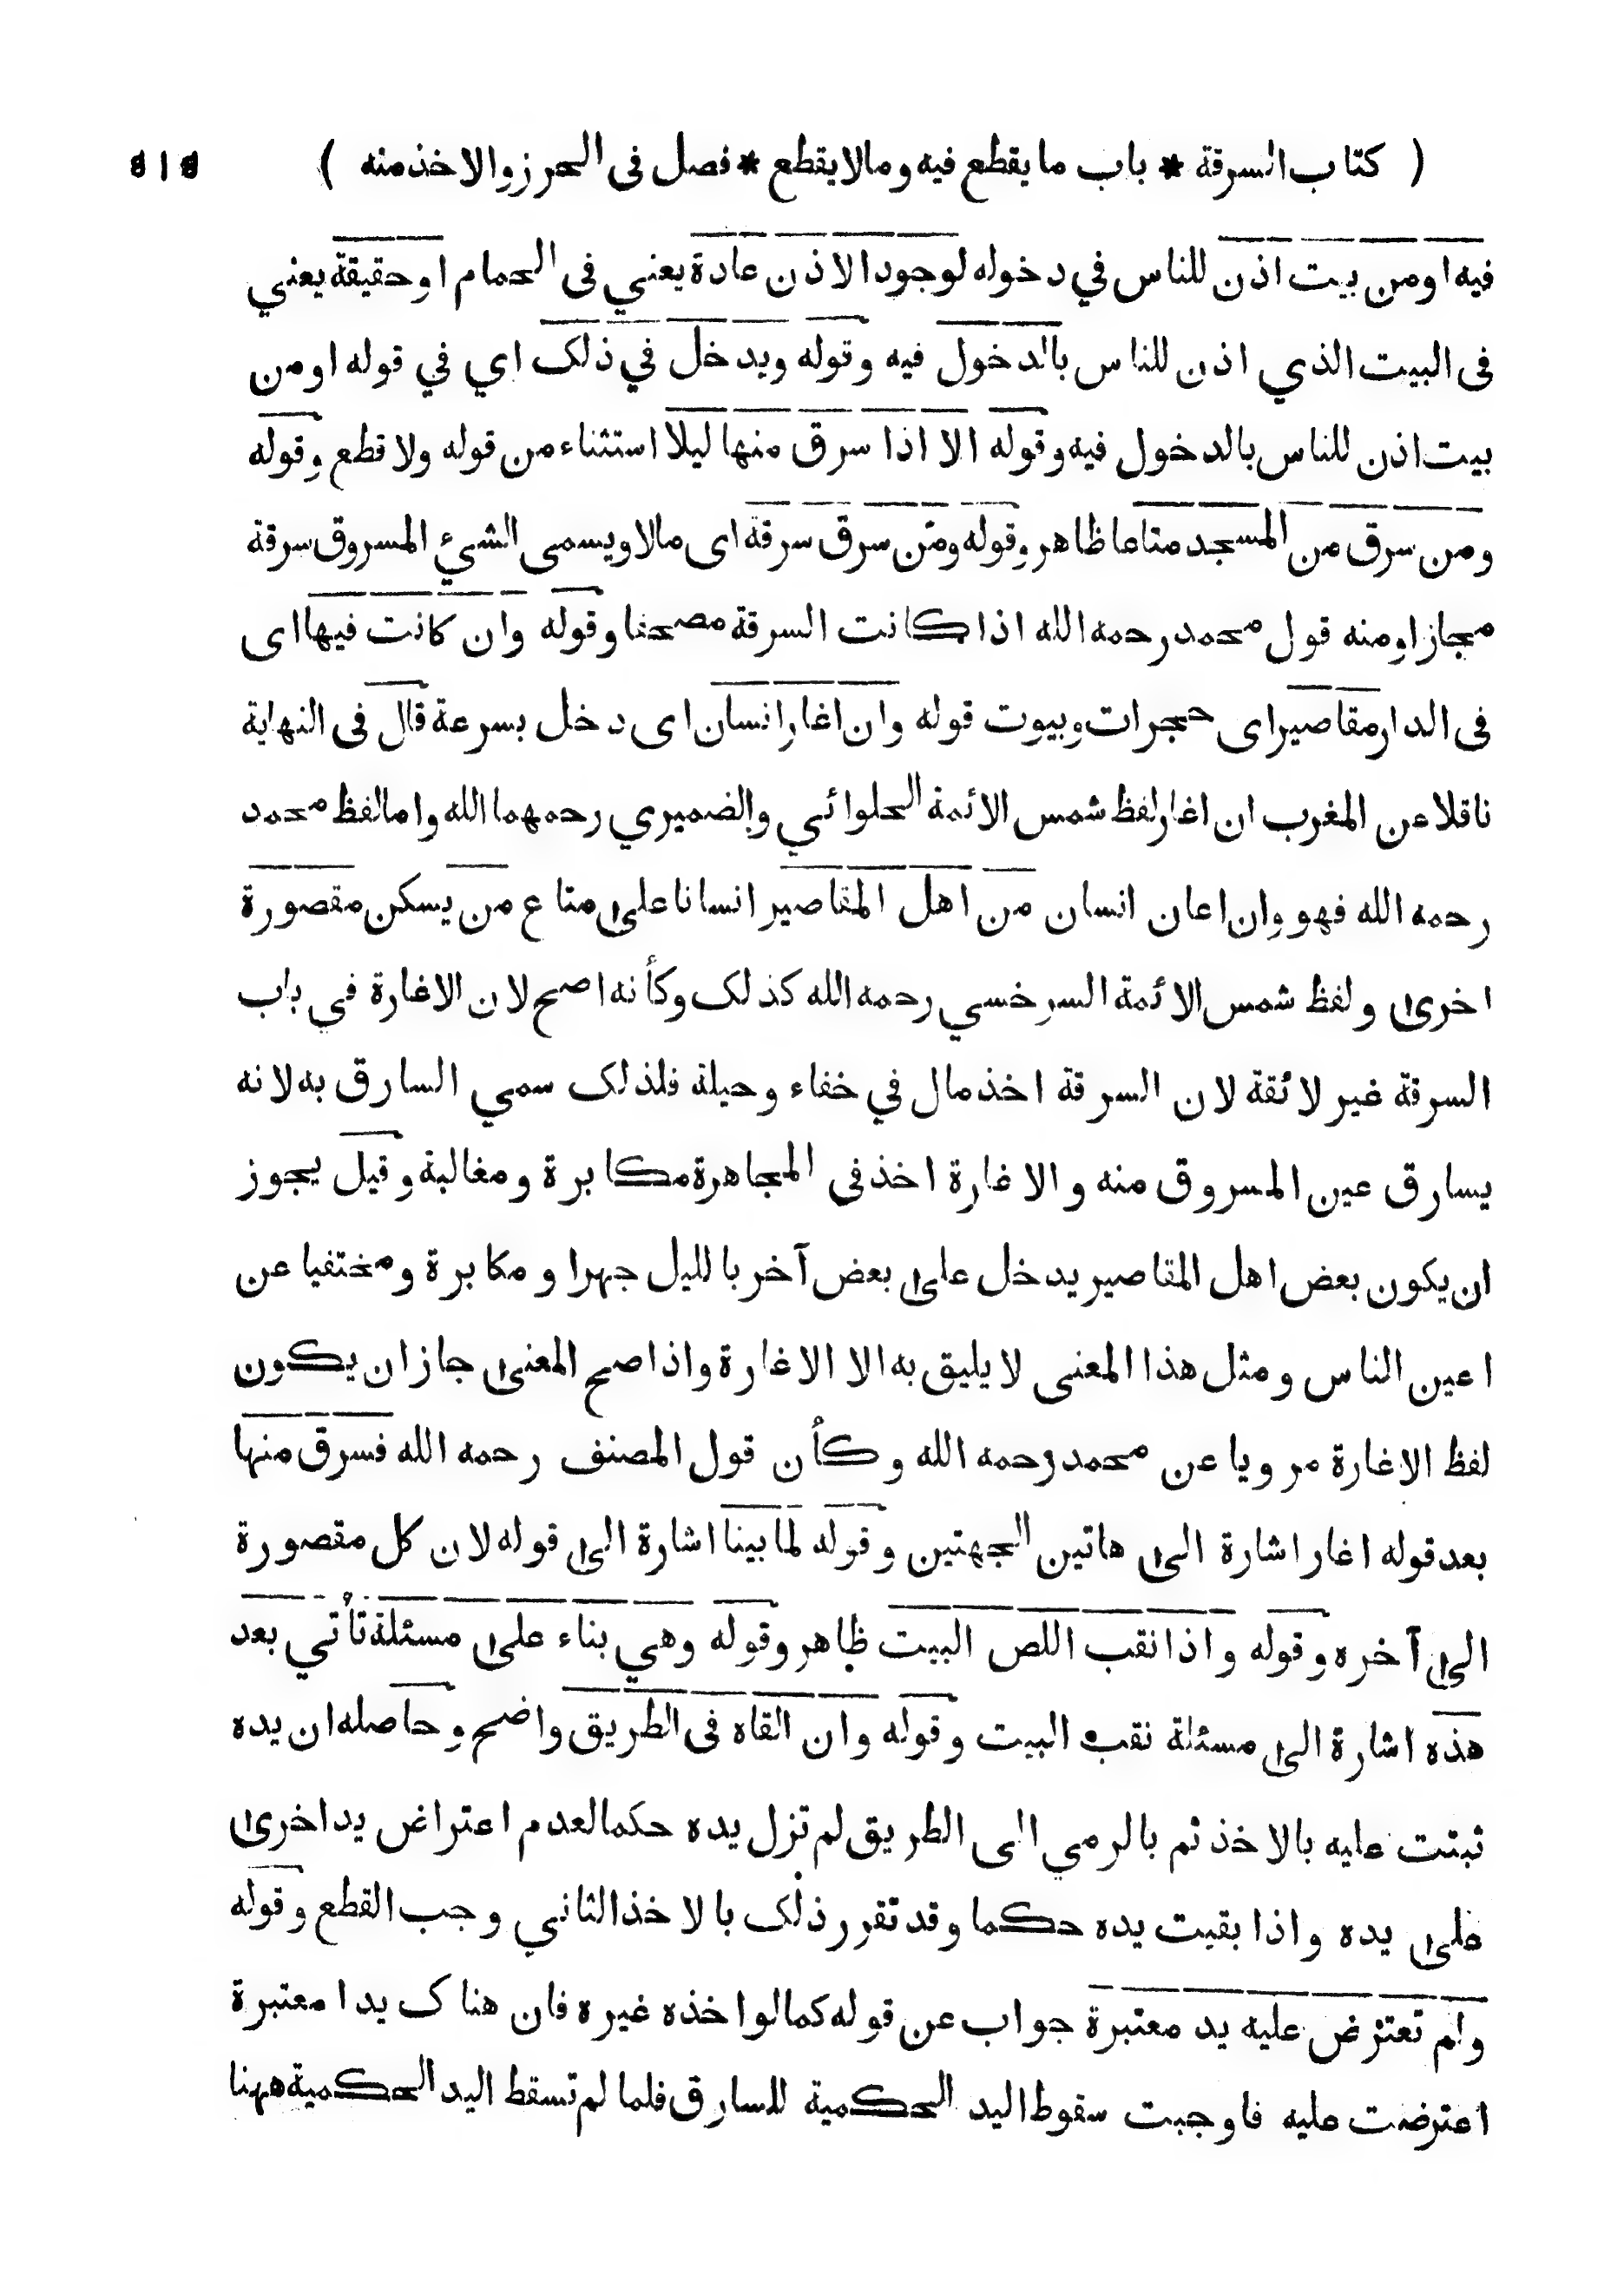 ( كتاب السرقة * باب ما يقطع فيه ومالا يقطع * فصل فى الحرز والاخذ منه )
فيه او من بيت اذن للناس في دخوله لوجود الاذن عادة يعني فى الحمام او حقيقة يعني
فى البيت الذي اذن للناس بالدخول فيه وقوله ويدخل في ذلك اي في قوله او من
بيت اذن للناس بالدخول فيه وقوله الا اذا سرق منها ليلا استثناء من قوله ولا قطع وقوله
ومن سرق من المسجد متاعا ظاهر وقوله ومن سرق سرقة اى مالا ويسمى الشيء المسروق سرقة
مجازا ومنه قول محمد رحمه الله اذا كانت السرقة مصحفا وقوله وان كانت فيها اى
فى الدار مقاصير اى حجرات وبيوت قوله وان اغار انسان اى دخل بسرعة قال فى النهاية
ناقلا عن المغرب ان اغار لفظ شمس الائمة الحلوائي والضميري رحمهما الله واما لفظ محمد
رحمه الله فهو وان اعان انسان من اهل المقاصير انسانا على متاع من يسكن مقصورة
اخرى ولفظ شمس الائمة السرخسي رحمه الله كذلك وكأنه اصح لان الاغارة في باب
السرقة غير لائقة لان السرقة اخذ مال في خفاء وحيلة فلذلك سمي السارق به لانه
يسارق عين المسروق منه والاغارة اخذ فى المجاهرة مكابرة ومغالبة وقيل يجوز
ان يكون بعض اهل المقاصير يدخل على بعض آخر بالليل جهرا ومكابرة ومختفيا عن
اعين الناس ومثل هذا المعنى لا يليق به الا الاغارة واذا صح المعنى جاز ان يكون
لفظ الاغارة مرويا عن محمد رحمه الله وكأن قول المصنف رحمه الله فسرق منها
بعد قوله اغار اشارة الى هاتين الجهتين وقوله لما بينا اشارة الى قوله لان كل مقصورة
الى آخره وقوله واذا نقب اللص البيت ظاهر وقوله وهي بناء على مسئلة تأتي بعد
هذه اشارة الى مسئلة نقب البيت وقوله وان القاه فى الطريق واضح وحاصله ان يده
ثبتت عليه بالاخذ ثم بالرمي الى الطريق لم تزل يده حكما لعدم اعتراض يد اخرى
على يده واذا بقيت يده حكما وقد تقرر ذلك بالاخذ الثاني وجب القطع وقوله
ولم تعترض عليه يد معتبرة جواب عن قوله كما لو اخذه غيره فان هناك يدا معتبرة
اعترضت عليه فاوجبت سقوط اليد الحكمية للسارق فلما لم تسقط اليد الحكمية ههنا